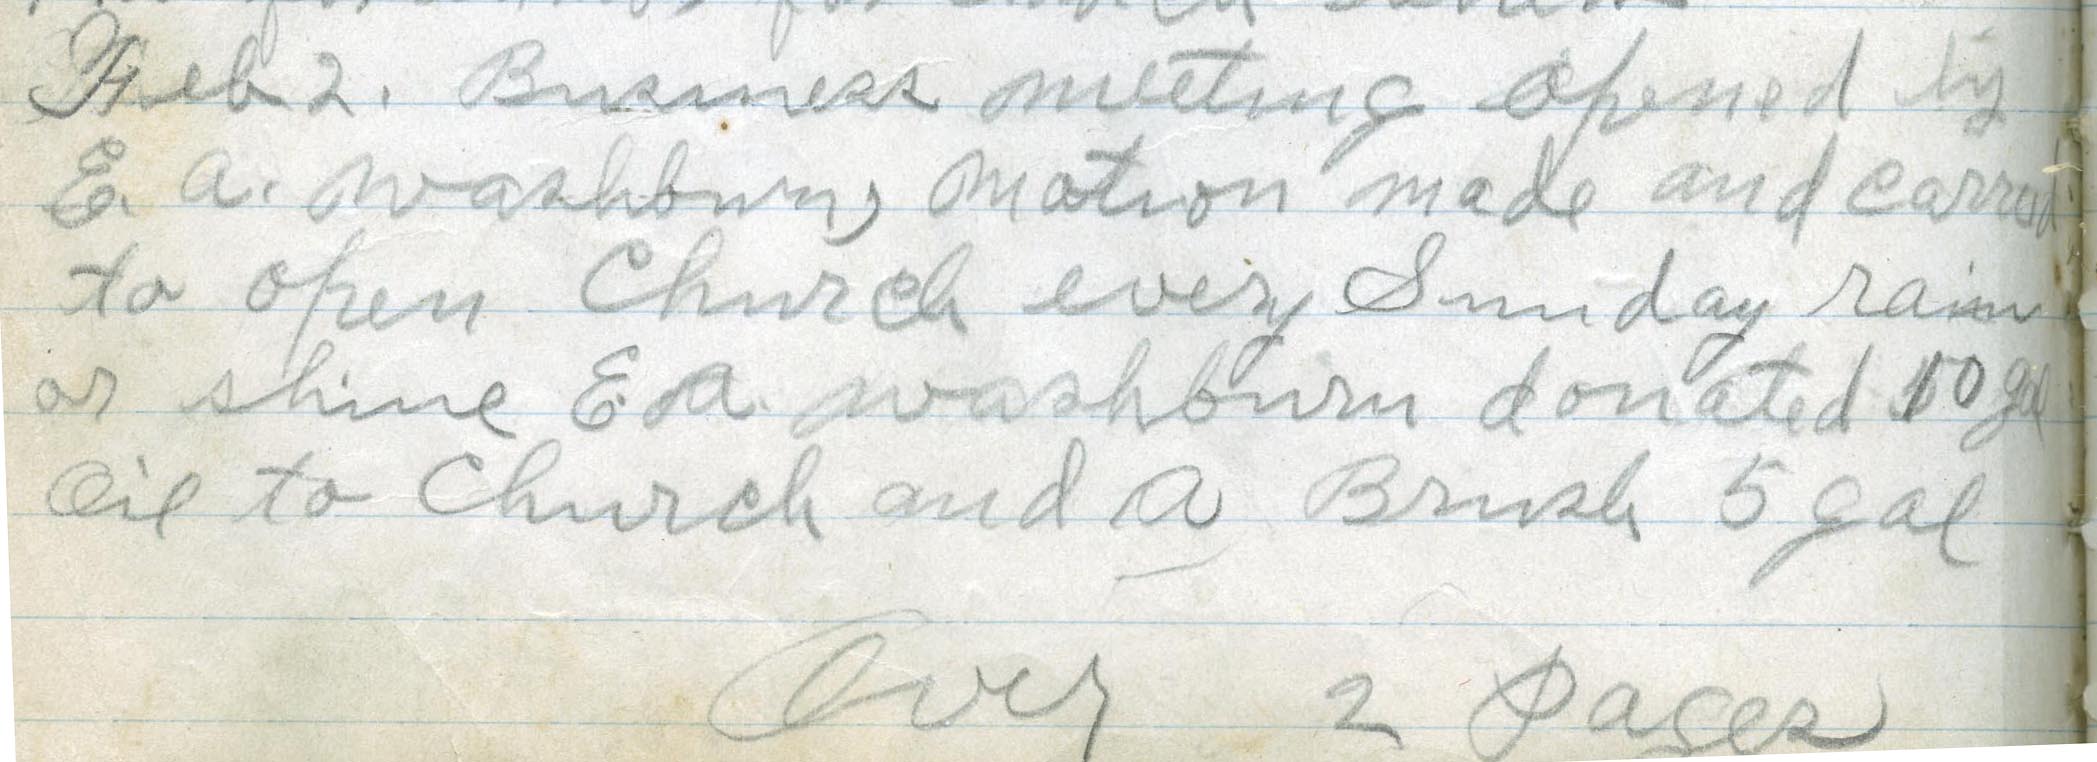 for
Feb 2. Business meeting opened by
E. A. Washburn, Motion made and carred
to open Church every Sunday rain
or shine E. A. Washburn donated 10 gal
Oil to Church and A Brush 5 gal
Over 2 Pages